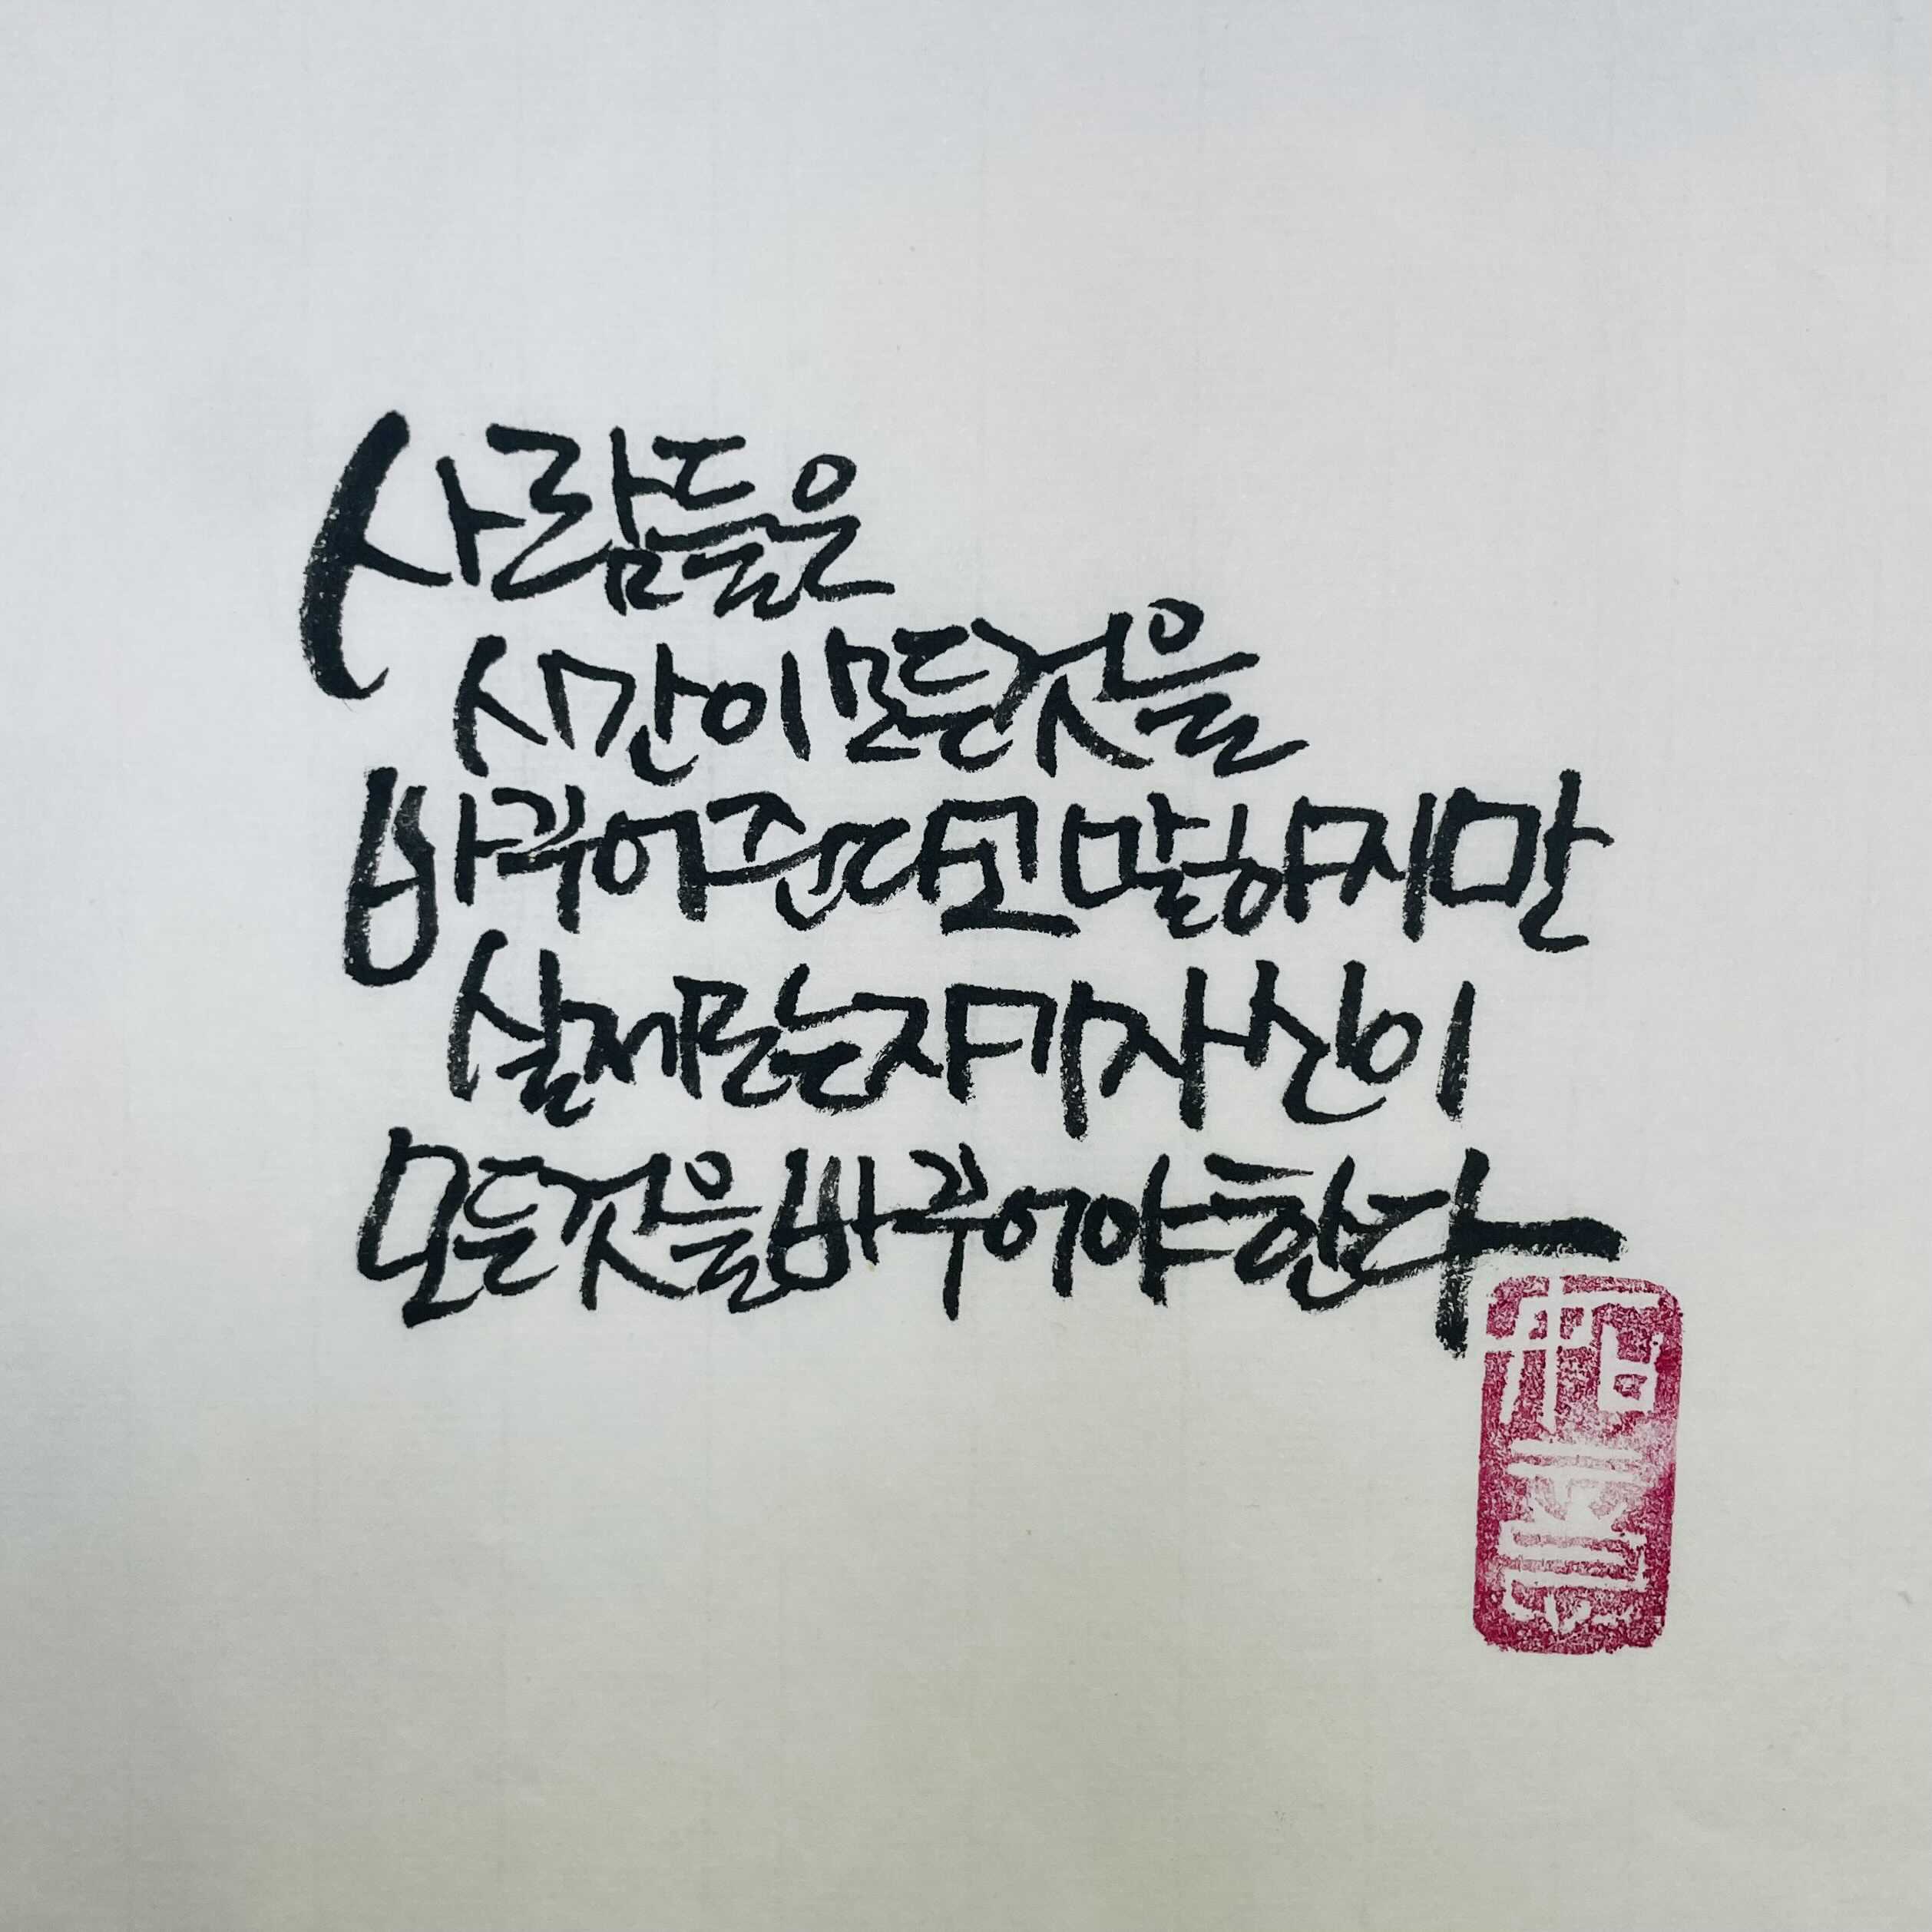 사람들은
시간이 모든것을
바꾸어준다고 말하지만
실제로는 자기자신이
모든것을 바꾸어야 한다